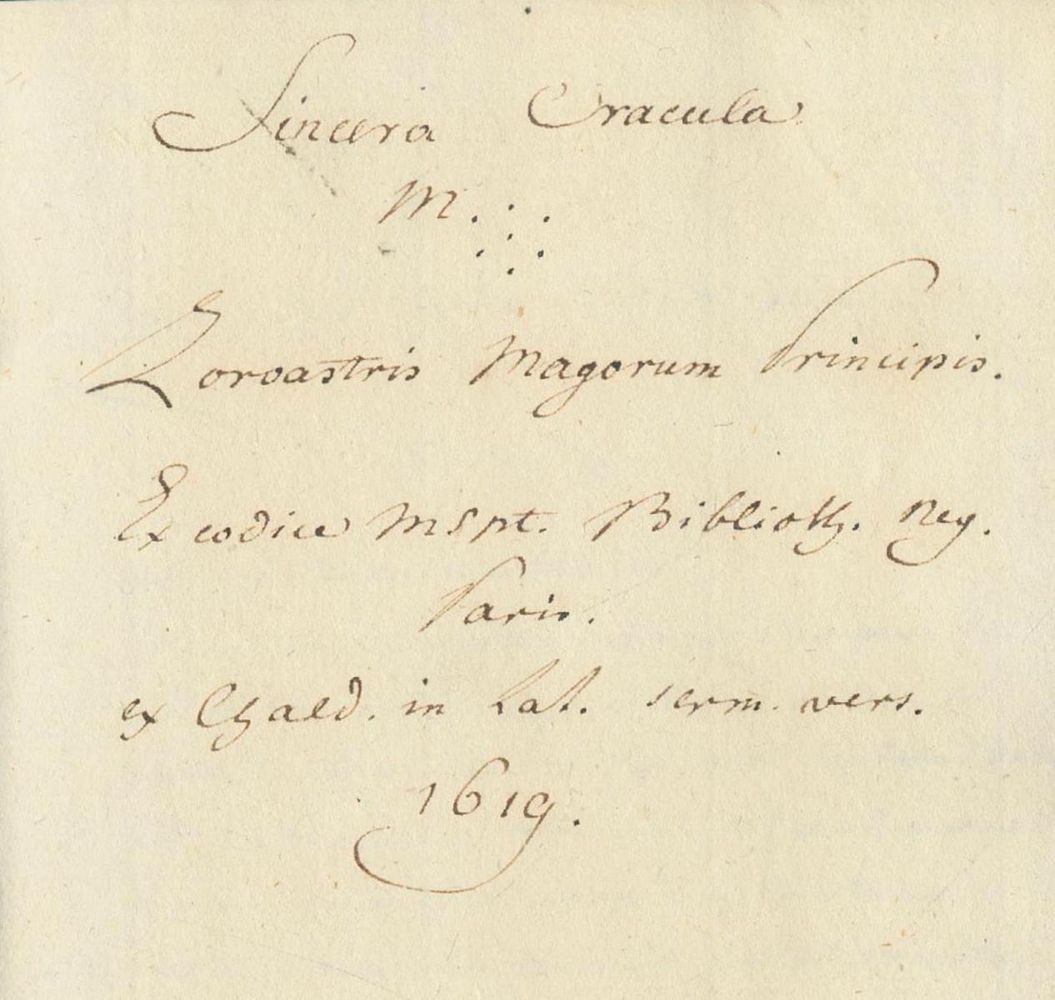 Sincera Oracula
M. . . . . . .
Zoroastris Magorum Principis.
Ex codice MSpt. Biblioth. Reg.
Paris.
ex Chald. in Lat. serm. vers.
1619.